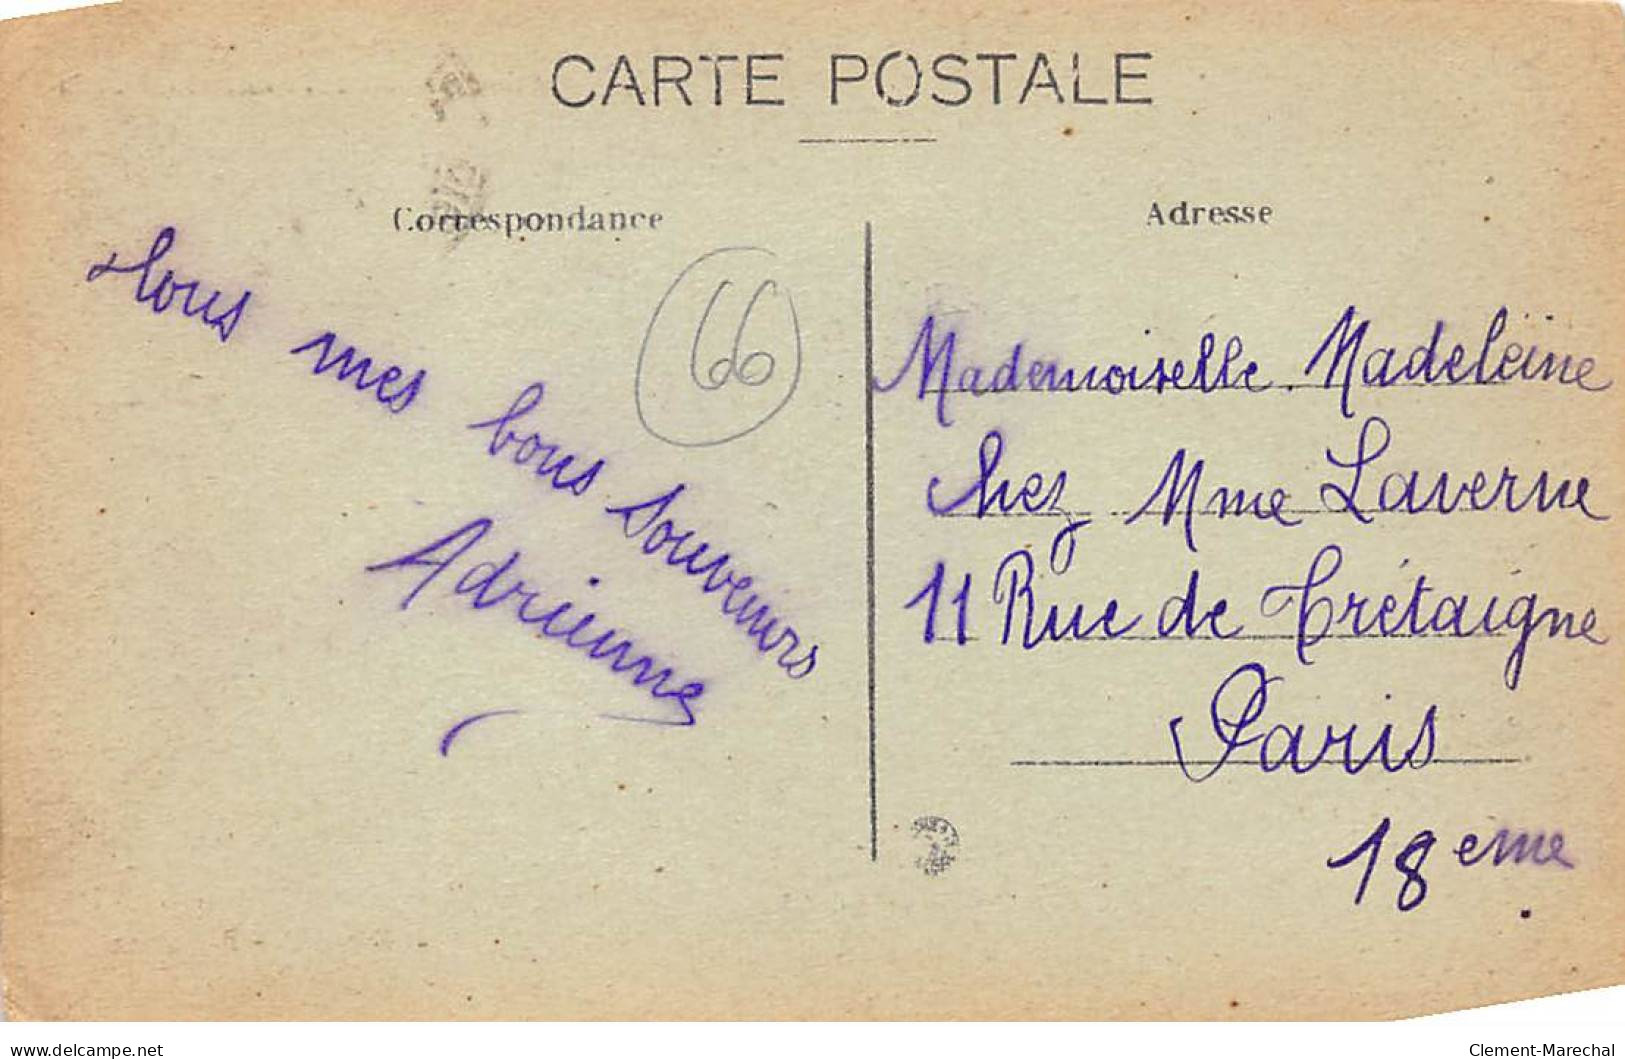 CARTE POSTALE
Correspondance
Tous mes bons souvenirs
Adrienne
66
Adresse
Mademoiselle Madeleine
Chez Mme Laverne
11 Rue de Trétaigne
Paris
18eme
delcampe.net
Clement-Marechal